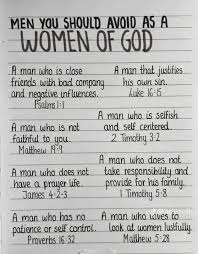 MEN YOU SHOULD AVOID AS A
WOMEN OF GOD
A man who is close
friends with bad company
and negative influences.
Psalms 1:1
A man that justifies
his own sin.
Luke 16:15
A man who is not
faithful to you.
Matthew 19:9
A man who is selfish
and self centered.
2 Timothy 3:2
A man who does not
have a prayer life.
James 4:2-3
A man who does not
take responsibility and
provide for his family.
1 Timothy 5:8
A man who has no
patience or self control.
Proverbs 16:32
A man who loves to
look at women lustfully.
Matthew 5:28